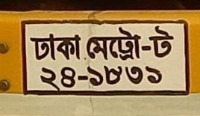 ঢাকা মেট্রো-ট
২৪-১৮৩১